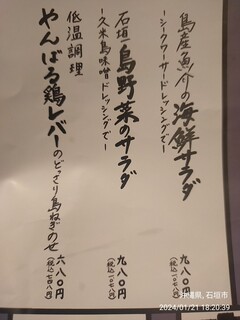 島産魚介の海鮮サラダ
ーシークワーサードレッシングでー
九八〇円
(税込一〇七八円)
石垣島野菜のサラダ
ー久米島味噌ドレッシングでー
九八〇円
(税込一〇七八円)
低温調理
やんばる鶏レバーのどっさり島ねぎのせ
六八〇円
(税込七四八円)
沖縄県,石垣市
2024/01/21 18:20:39